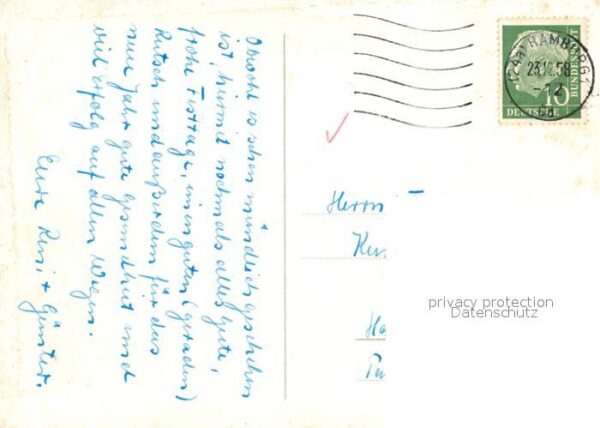 Obwohl es schon mündlich geschehen
ist, hiermit nochmals alles Gute,
frohe Festtage, einen guten (geraden)
Rutsch und außerdem für das
neue Jahr gute Gesundheit und
viel Erfolg auf allen Wegen.
Eure Reni + Günter.
(24a) HAMBURG
23.12.58
-12
10
DEUTSCHE
BUNDESPOST
Herrn
privacy protection
Datenschutz